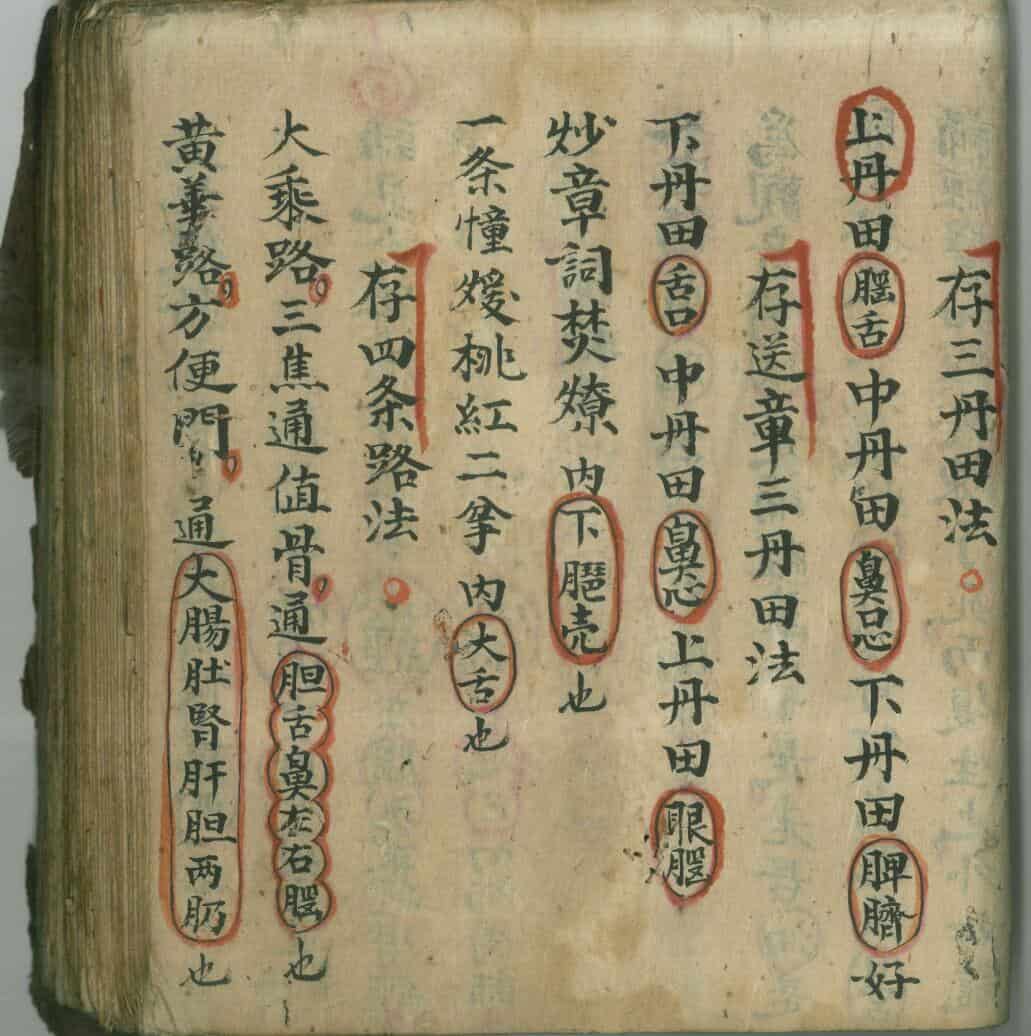 存三丹田法
上丹田腦舌中丹田鼻忍下丹田脾臍好
存送章三丹田法
下丹田舌口中丹田鼻心上丹田眼腦
炒章詞焚燎内下腮壳也
一条憧媛桃紅二掌内大舌也
存四条路法
大乘路三焦通值骨通胆舌鼻左右腦也
黄華路方便門通大腸肚腎肝胆两肋也